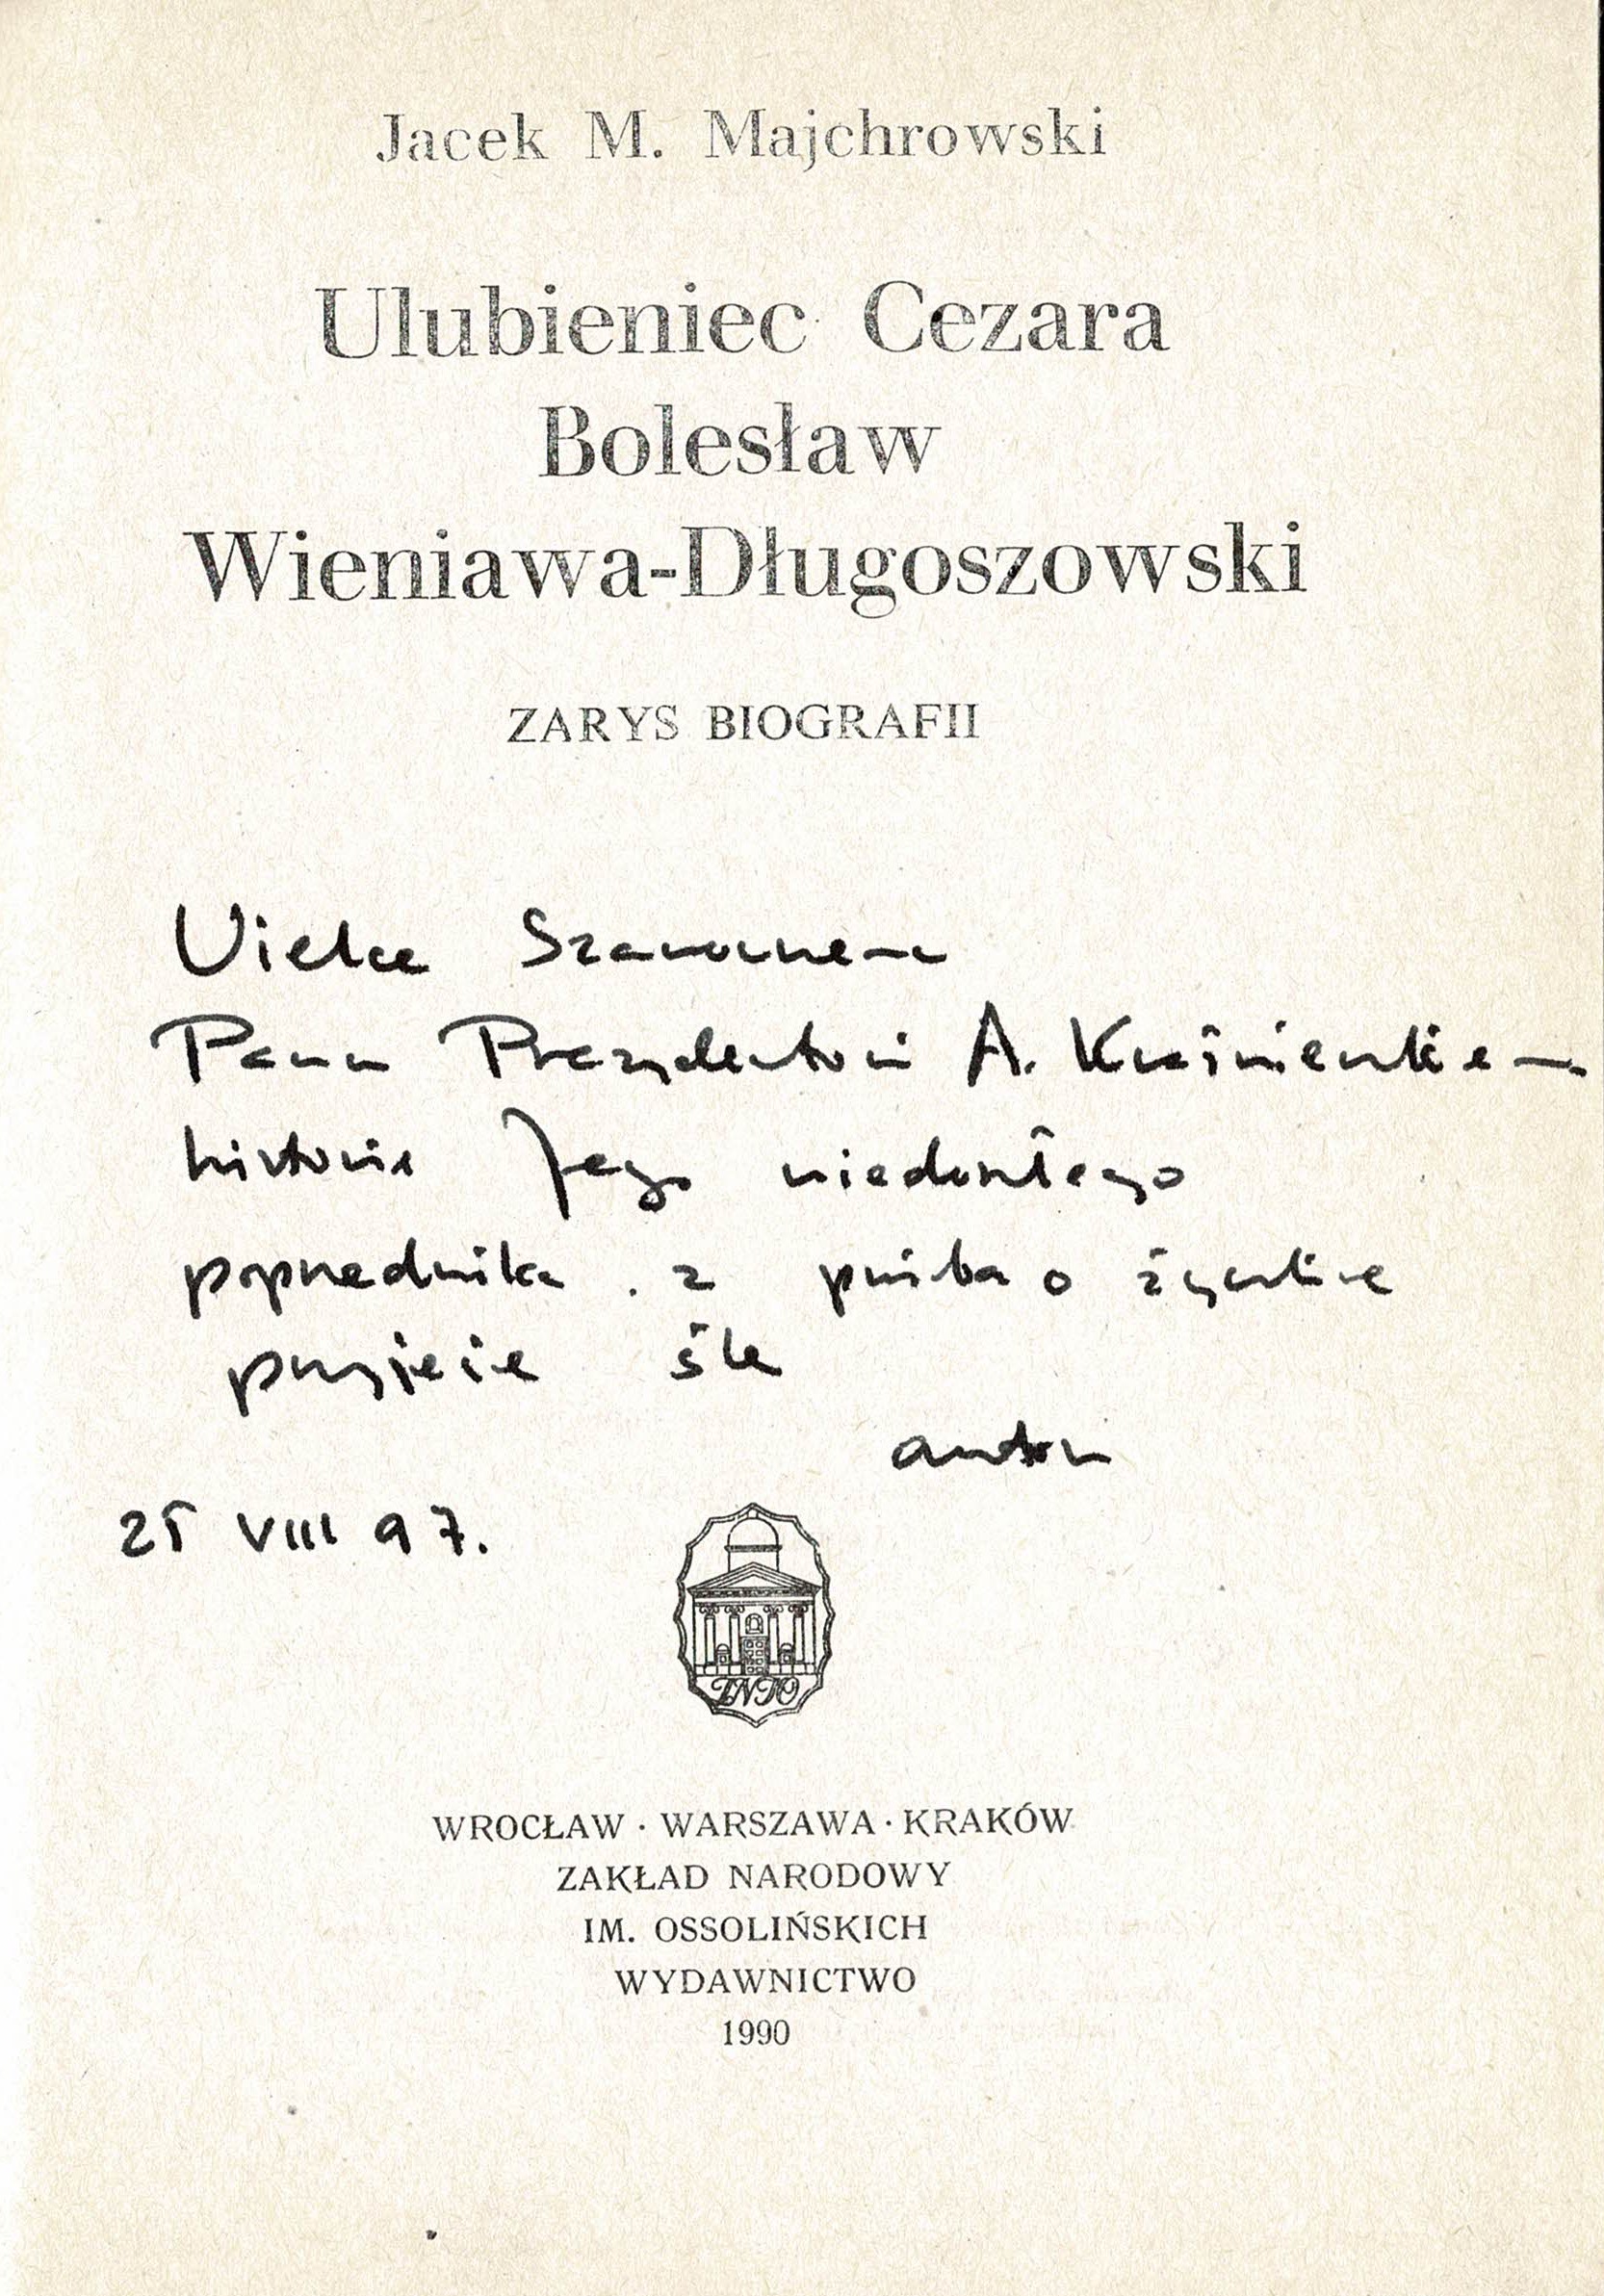 Jacek M. Majchrowski
Ulubieniec Cezara
Bolesław
Wieniawa-Długoszowski
ZARYS BIOGRAFII
Wielce Szanownemu
Panu Prezydentowi A. Kwaśniewskiemu
historię Jego niedoszłego
poprzednika . z prośbą o życzliwe
przyjęcie śle
autor
25 VIII 97.
ZNIO
WROCŁAW · WARSZAWA · KRAKÓW
ZAKŁAD NARODOWY
IM. OSSOLIŃSKICH
WYDAWNICTWO
1990